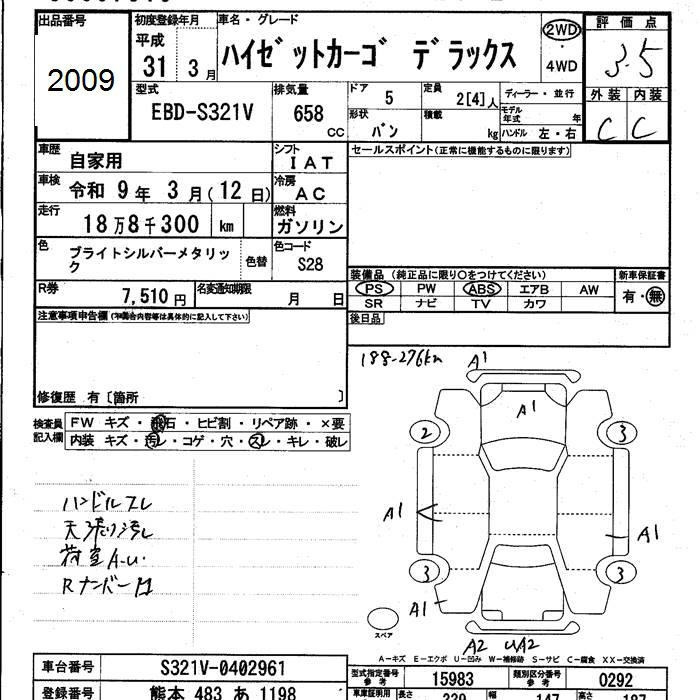 出品番号
2009
初度登録年月
平成
31 3 月
車名・グレード
ハイゼットカーゴ デラックス
2WD
・
4WD
評価点
3.5
外装 内装
C C
型式
EBD-S321V
排気量
658
CC
ドア
5
定員
2[4]人
ディーラー・並行
形状
バン
積載
kg
モデル年式
年
ハンドル 左・右
車歴
自家用
シフト
IAT
車検
令和 9 年 3 月(12 日)
冷房
AC
走行
18 万 8 千 300 km
燃料
ガソリン
色
ブライトシルバーメタリック
色替
色コード
S28
R券
7,510 円
名変通知期限
月 日
セールスポイント(正常に機能するものに限ります)
装備品 (純正品に限り○をつけてください)
PS PW ABS エアB AW
SR ナビ TV カワ
新車保証書
有・無
後日品
注意事項申告欄(不具合内容等は具体的に記入して下さい)
修復歴 有〔箇所 〕
検査員
記入欄
FW キズ・飛石・ヒビ割・リペア跡・×要
内装 キズ・汚レ・コゲ・穴・スレ・キレ・破レ
ハンドルスレ
天張り汚レ
荷室A.u.
Rナンバー凹
188-276km
A1
A1
2
3
A1
A1
3
3
A1
A2 UA2
スペア
A-キズ E-エクボ U-凹み W-補修跡 S-サビ C-腐食 XX-交換済
車台番号
S321V-0402961
登録番号
熊本 483 あ 1198
型式指定番号
参考
15983
類別区分番号
参考
0292
車車証明用
長さ
339
幅
147
高さ
187